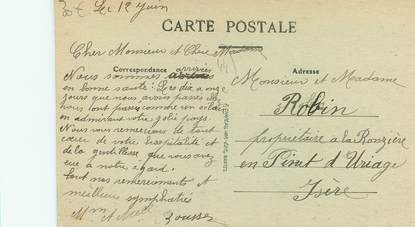 30€ Le 12 Juin
CARTE POSTALE
Cher Monsieur et Chère Madame
Correspondance
Nous sommes arrivés
en bonne santé. Les dix à onze
jours que nous avons passés
nous sont passés comme un
en admirant votre joli pays
Nous vous remercions de tout
cœur de votre hospitalité et
de la gentillesse que vous avez
eue à notre égard.
tout nos remerciements et
meilleure sympathies
Mr et Mme
Adresse
Monsieur et Madame
Robin
propriétaire à la Ronzière
en Pinet d'Uriage
Isère